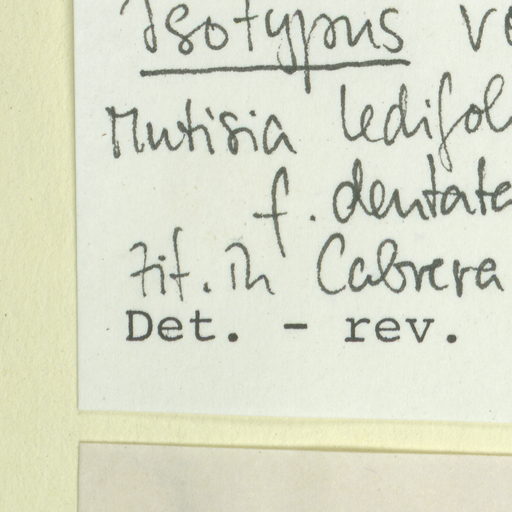 Isotypus
Mutisia ledifol
f. dentata
zit. in Cabrera
Det. - rev.